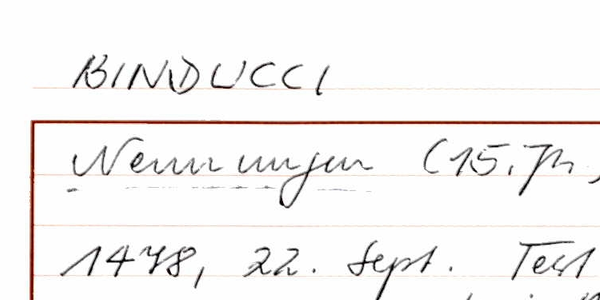 BINDUCCI
Nennungen (15. Jh.)
1478, 22. Sept. Test